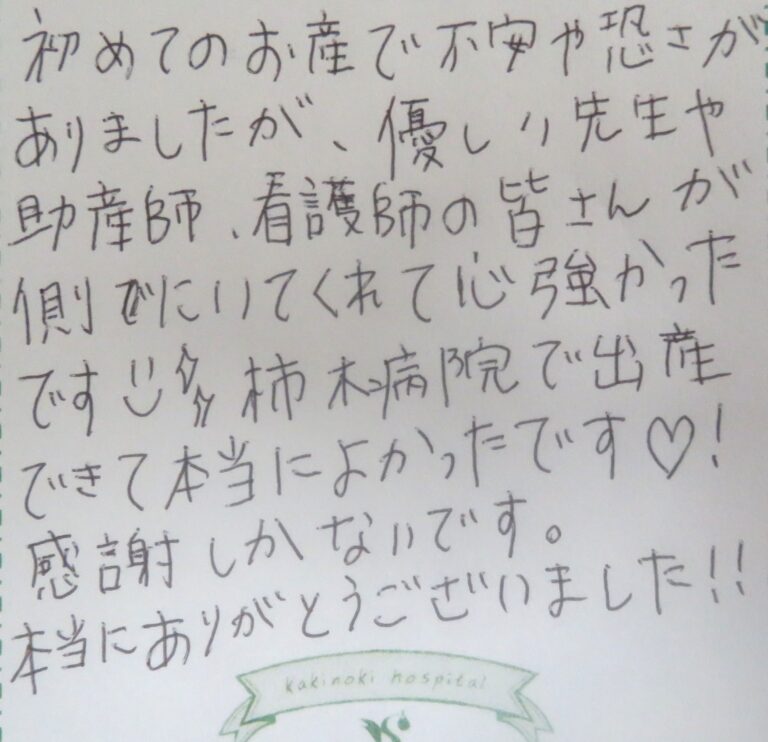 初めてのお産で不安や恐さが
ありましたが、優しい先生や
助産師、看護師の皆さんが
側でにいてくれて心強かった
です 柿木病院で出産
できて本当によかったです♡!
感謝しかないです。
本当にありがとうございました!!
kakinoki hospital